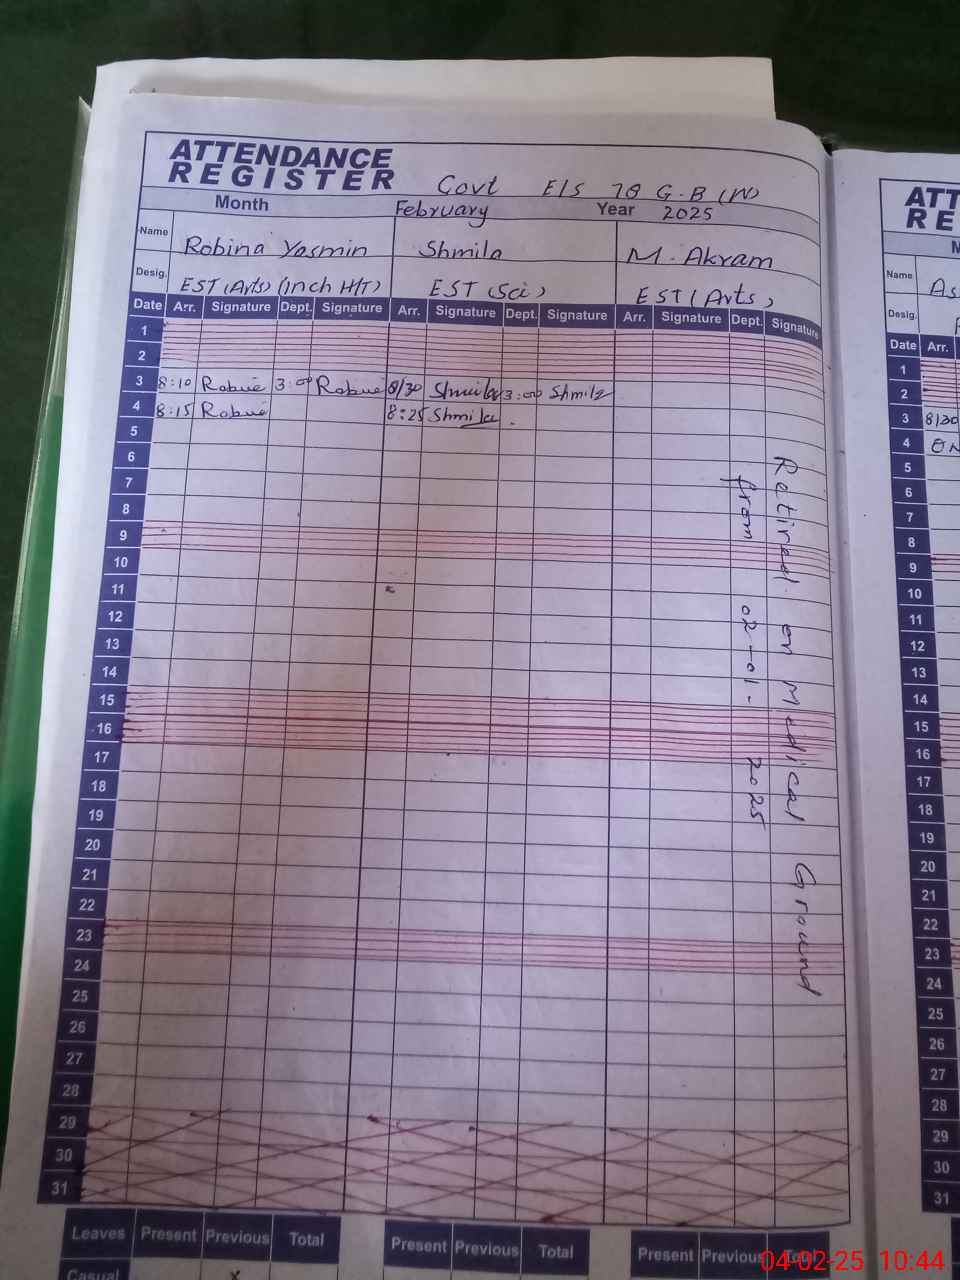 ATTENDANCE
REGISTER
Govt E/S 78 G.B (W)
Month February Year 2025
Name Robina Yasmin Shmila M. Akram
Desig. EST (Arts) (inch H/T) EST (Sci) EST (Arts)
Date Arr. Signature Dept. Signature Arr. Signature Dept. Signature Arr. Signature Dept. Signature
1
2
3 8:10 3:00 8/30 Shmila 3:00 Shmila
4 8:15 8:25 Shmila
5
6
7
8
9
10
11
12
13
14
15
16
17
18
19
20
21
22
23
24
25
26
27
28
29
30
31
Retired on Medical Ground
from 02-01-2025
Leaves Present Previous Total Present Previous Total Present Previous Total
Casual
ATT
RE
Name As
Desig.
Date Arr.
1
2
3 8/30
4 ON
5
6
7
8
9
10
11
12
13
14
15
16
17
18
19
20
21
22
23
24
25
26
27
28
29
30
31
04-02-25 10:44